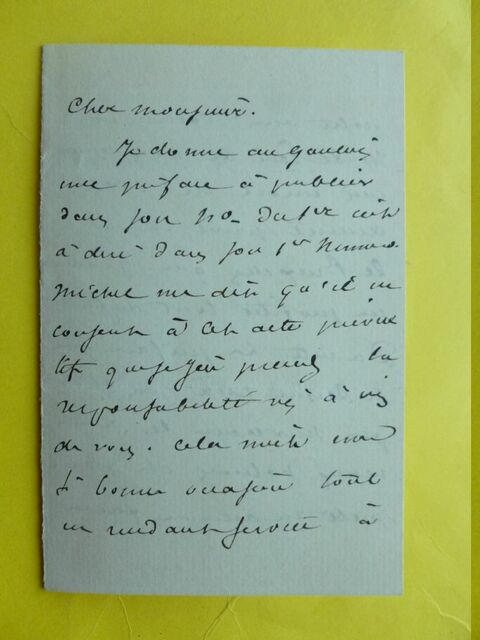 Cher monsieur.
Je donne au Gaulois
une préface à publier
dans son No du 1er c'est
à dire dans son 1er Numero
Michel me dit qu'il ne
consent à cet acte
que si j'en prends la
responsabilité vis à vis
de vous. cela m'est une
bonne occasion tout
en rendant service à